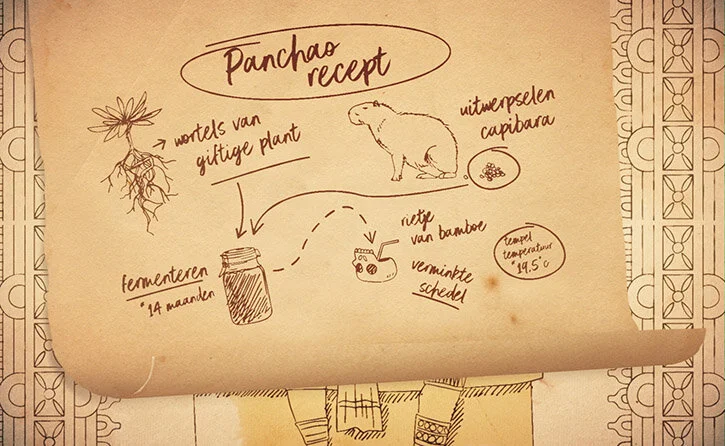 Panchao
recept
wortels van
giftige plant
uitwerpselen
capibara
fermenteren
*14 maanden
rietje
van bamboe
verminkte
schedel
tempel
temperatuur
*19.5°c